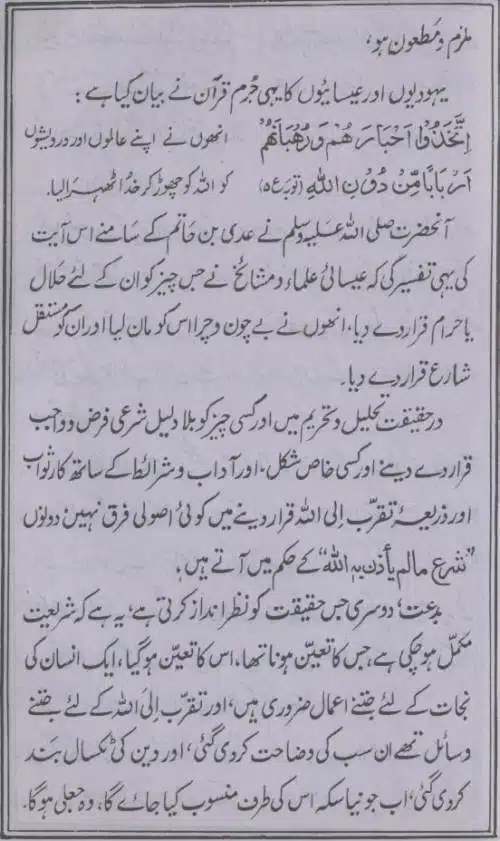 ملزم و مطعون ہو،
یہودیوں اور عیسائیوں کا یہی جُرم قرآن نے بیان کیا ہے:
اِتَّخَذُوْا اَحْبَارَهُمْ وَرُهْبَانَهُمْ انھوں نے اپنے عالموں اور درویشوں
اَرْبَابًا مِّنْ دُوْنِ اللّٰهِ (توبہ ع ۵) کو اللہ کو چھوڑ کر خدا ٹھہرا لیا۔
آنحضرت صلی اللہ علیہ وسلم نے عدی بن حاتم کے سامنے اس آیت
کی یہی تفسیر کی کہ عیسائی علماء و مشائخ نے جس چیز کو ان کے لئے حلال
یا حرام قرار دے دیا، انھوں نے بے چون و چرا اس کو مان لیا اور ان کو مستقل
شارع قرار دے دیا۔
در حقیقت تحلیل و تحریم میں اور کسی چیز کو بلا دلیل شرعی فرض و واجب
قرار دے دینے اور کسی خاص شکل، اور آداب و شرائط کے ساتھ کارِ ثواب
اور ذریعۂ تقرّب اِلی اللہ قرار دینے میں کوئی اصولی فرق نہیں دونوں
”شرع مالم یأذن بہ اللہ“ کے حکم میں آتے ہیں،
بدعت، دوسری جس حقیقت کو نظر انداز کرتی ہے، یہ ہے کہ شریعت
مکمّل ہو چکی ہے، جس کا تعیّن ہونا تھا، اس کا تعیّن ہو گیا، ایک انسان کی
نجات کے لئے جتنے اعمال ضروری ہیں، اور تقرّب اِلیَ اللہ کے لئے جتنے
وسائل تھے ان سب کی وضاحت کر دی گئی، اور دین کی ٹکسال بند
کر دی گئی، اب جو نیا سکہ اس کی طرف منسوب کیا جائے گا، وہ جعلی ہو گا۔